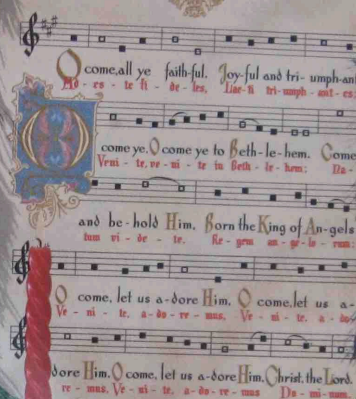 O come, all ye faith-ful. Joy-ful and tri- umph-an
Ad - es - te fi - de - les, Lae-ti tri-umph - ant - es:
O come ye, O come ye to Beth-le-hem. Come
Veni - te, ve - ni - te in Beth - le - hem: Na-
and be-hold Him. Born the King of An-gels
tum vi - de - te, Re - gem an - ge - lo - rum:
O come, let us a-dore Him. O come, let us a-
Ve - ni - te, a-do-re-mus, Ve - ni - te, a - do-
dore Him, O come, let us a-dore Him, Christ, the Lord.
re - mus, Ve - ni - te, a-do-re-mus Do - mi-num.